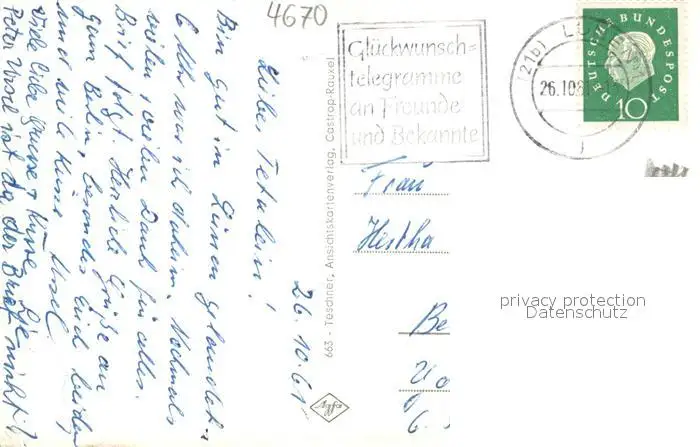 4670
Glückwunsch=
telegramme
an Freunde
und Bekannte
(21b) LÜ
26.10.61
DEUTSCHE BUNDESPOST
10
26.10.61
Liebe
Bin gut in Lünen gelandet.
6 Uhr war ich daheim. Nochmals
vielen vielen Dank für alles.
Brief folgt. Herzliche Grüße an
ganz Berlin, besonders Euch beiden
und
Viele liebe Grüsse + Küsse
Peter Ursel ist da, der Brief nicht!
663 - Teschner, Ansichtskartenverlag, Castrop-Rauxel
Agfa
Frau
Hertha
Be
privacy protection
Datenschutz